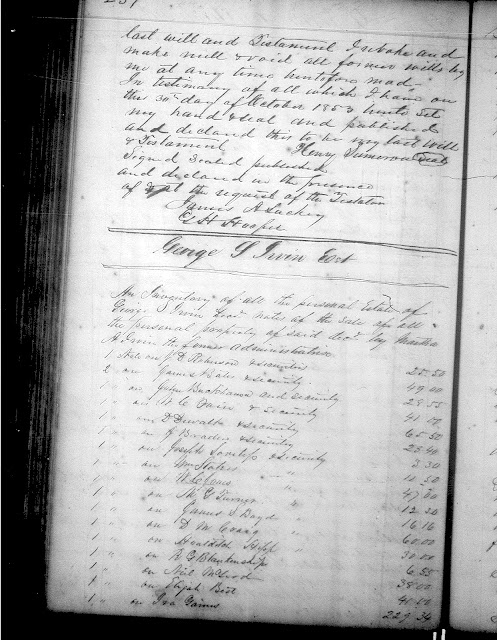 last will and Testament I revoke and
make null & void all former wills by
me at any time heretofore made
In testimony of all which I have on
this 30th day of October 1853 hereto set
my hand & seal and published
and declared this to be my last Will
& Testament Henry Seal
Signed Sealed published
and declared in the presence
of & at the request of the Testator
James A Lackey
G H Hooper
George S Irvin Est
An Inventory of all the personal Estate of
George S Irvin Decd notes of the sale of all
the personal property of said Decd by Martha
A Irvin the former Administratrix
1 Note on J D Robinson & securities 25.50
2 " on James Bates & security 49.00
1 " on John Buchanan and security 28.55
1 " on & security
1 " on D Dewalt & security 65.50
1 " on J Braden & security 25.40
1 " on Joseph Lovelass & security 2.30
1 " on Wm " 10.50
1 " on " 47.00
1 " on M G Turner " 12.30
1 " on James S Boyd " 16.16
1 " on D M Craig " 60.00
1 " on Hipp 30.00
1 " on R G Blankenship 6.55
1 " on Neil McLeod 38.00
1 " on Elijah Best 40.00
1 " on Ira 229.34